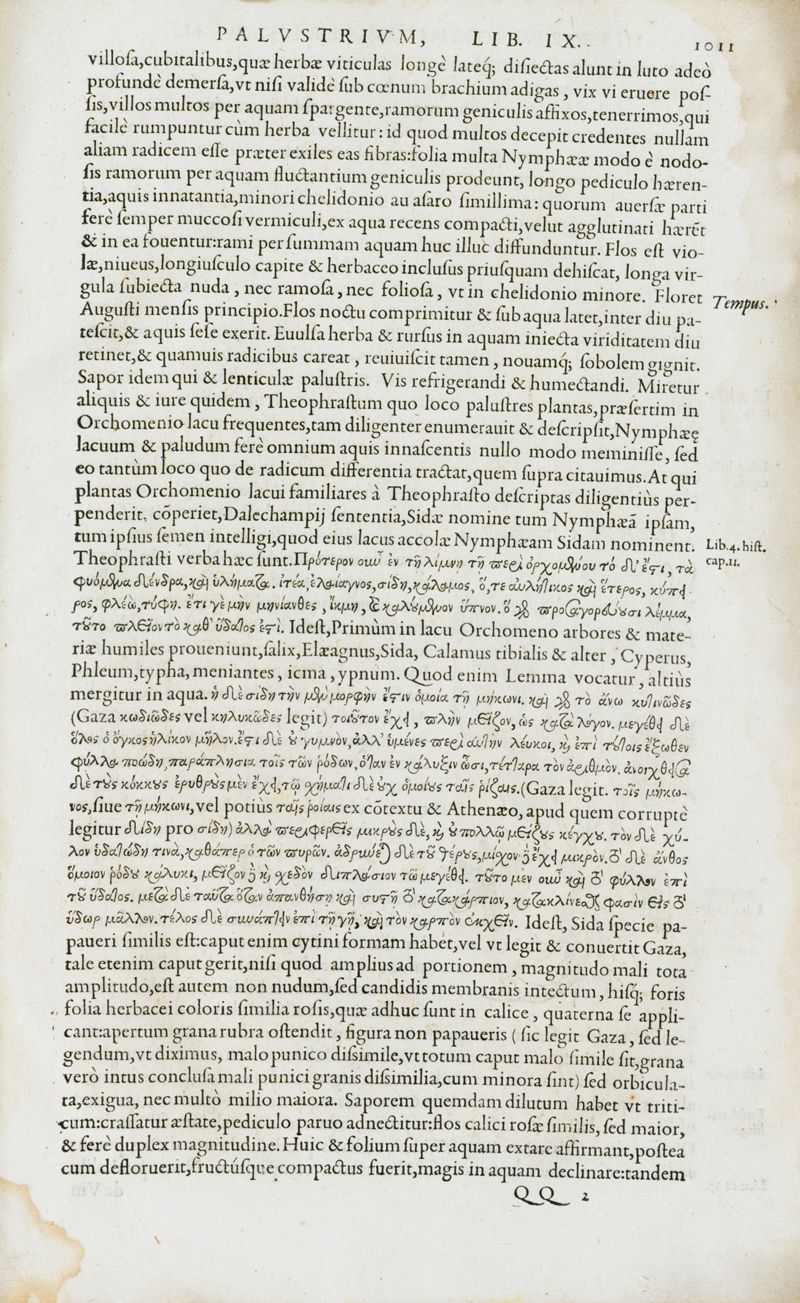 PALVSTRIVM, LIB. IX. 1011
villosa,cubitalibus,quæ herbæ viticulas longè lateq́; disiectas alunt in luto adeò
profundè demersa,vt nisi validè sub cœnum brachium adigas , vix vi eruere pos-
sis,villos multos per aquam spargente,ramorum geniculis affixos,tenerrimos,qui
facilè rumpuntur cùm herba vellitur: id quod multos decepit credentes nullam
aliam radicem esse præter exiles eas fibras:folia multa Nymphææ modo è nodo-
sis ramorum per aquam fluctantium geniculis prodeunt, longo pediculo hæren-
tia,aquis innatantia,minori chelidonio au asaro simillima: quorum auersæ parti
ferè semper muccosi vermiculi,ex aqua recens compacti,velut agglutinati hærẽt
& in ea fouentur:rami per summam aquam huc illuc diffunduntur. Flos est vio-
læ,niueus,longiusculo capite & herbaceo inclusus priusquam dehiscat, longa vir-
gula subiecta nuda , nec ramosa, nec foliosa , vt in chelidonio minore. Floret
Tempus.
Augusti mensis principio.Flos noctu comprimitur & sub aqua latet,inter diu pa-
tescit,& aquis sese exerit. Euulsa herba & rursus in aquam iniecta viriditatem diu
retinet,& quamuis radicibus careat , reuiuiscit tamen , nouamq́; sobolem gignit.
Sapor idem qui & lenticulæ palustris. Vis refrigerandi & humectandi. Miretur
aliquis & iure quidem , Theophrastum quo loco palustres plantas,præsertim in
Orchomenio lacu frequentes,tam diligenter enumerauit & descripsit,Nymphææ
lacuum & paludum ferè omnium aquis innascentis nullo modo meminisse, sed
eo tantùm loco quo de radicum differentia tractat,quem supra citauimus.At qui
plantas Orchomenio lacui familiares à Theophrasto descriptas diligentiùs per-
penderit, cõperiet,Dalechampij sententia,Sidæ nomine tum Nymphæã ipsam,
tum ipsius semen intelligi,quod eius lacus accolæ Nymphæam Sidam nominent.
Lib.4.hist.
cap.11.
Theophrasti verba hæc sunt.Πρότερον οὖν ἐν τῇ λίμνῃ τῇ περὶ ὀρχομενοῦ τό δ' ἔστι, τὰ
φυόμενα δένδρα,καὶ ὑλήματα. ἰτέα,ἐλαίαγνος,σίδη,κάλαμος, ὅ,τε αὐλήτικος καὶ ἕτερος, κύπει
ρος, φλέως,τύφη. ἔτι γε μὴν μηνίανθες , ἴκμη , & καλούμενον ὕπνον. ὃ γὰρ προσαγορεύουσι λέμμα,
τοῦτο πλεῖον τὸ καθ' ὕδατος ἐστί. Idest,Primùm in lacu Orchomeno arbores & mate-
riæ humiles proueniunt,salix,Elæagnus,Sida, Calamus tibialis & alter , Cyperus,
Phleum,typha,meniantes , icma , ypnum. Quod enim Lemma vocatur , altiùs
mergitur in aqua. ἡ δὲ σίδη τὴν μὲν μορφὴν ἔστιν ὁμοία τῇ μήκωνι. καὶ γὰρ τὸ ἄνω κυτινῶδες
(Gaza κωδιῶδες vel κηλυκῶδες legit) τοιοῦτον ἔχει , πλὴν μεῖζον, ὡς κατὰ λόγον. μεγέθει δὲ
ὅλος ὁ ὄγκος ἡλίκον μῆλον.ἔστι δὲ οὐ γυμνὸν,ἀλλ' ὑμένες περὶ αὐτὴν λέυκοι, καὶ ἐπὶ τούτοις ἔξωθεν
φύλλα ποώδη,παράπλησια τοῖς τῶν ῥόδων,ὅταν ἐν κάλυξιν ὦσι,τέτταρα τὸν ἀριθμὸν. ἀνοιχθεῖσα
δὲ τοὺς κόκκους ἐρυθροὺς μὲν ἔχει,τῷ σχήματι δὲ οὐχ ὁμοίους ταῖς ῥίζαις.(Gaza legit. τοῖς μήκω-
νος,siue τῇ μήκωνι,vel potiùs ταῖς ῥοίαις ex cõtextu & Athenæo,apud quem corruptè
legitur δίδη pro σίδη) ἀλλὰ περιφερεῖς μικροὺς δὲ, καὶ οὐ πολλῷ μείζους κέγχρου. τὸν δὲ χύ-
λον ὑδατώδη τινὰ,καθάπερ ὁ τῶν πυρῶν. ἁδρύνεται δὲ τοῦ θέρους,μίσχον δὲ ἔχει μικρὸν.τὸ δὲ ἄνθος
ὅμοιον ῥόδου κάλυκι, μεῖζον δὲ καὶ σχεδὸν διπλάσιον τῷ μεγέθει. τοῦτο μὲν οὖν καὶ τὸ φύλλον ἐπὶ
τοῦ ὕδατος. μετὰ δὲ ταῦτα ὅταν ἀπανθήσῃ καὶ συστῇ τὸ κατακάρπιον, κατακλίνεσθαι φασὶν εἰς τὸ
ὕδωρ μᾶλλον. τέλος δὲ συνάπτειν ἐπὶ τῇ γῇ, καὶ τὸν καρπὸν ἐκχεῖν. Idest, Sida specie pa-
paueri similis est:caput enim cytini formam habet,vel vt legit & conuertit Gaza,
tale etenim caput gerit,nisi quod amplius ad portionem , magnitudo mali tota
amplitudo,est autem non nudum,sed candidis membranis intectum , hisq́; foris
folia herbacei coloris similia rosis,quæ adhuc sunt in calice , quaterna se appli-
cant:apertum grana rubra ostendit , figura non papaueris ( sic legit Gaza , sed le-
gendum,vt diximus, malo punico dissimile,vt totum caput malo simile sit,grana
verò intus conclusa mali punici granis dissimilia,cum minora sint) sed orbicula-
ta,exigua, nec multò milio maiora. Saporem quemdam dilutum habet vt triti-
cum:crassatur æstate,pediculo paruo adnectitur:flos calici rosæ similis, sed maior,
& ferè duplex magnitudine. Huic & folium super aquam extare affirmant,postea
cum defloruerit,fructúsque compactus fuerit,magis in aquam declinare:tandem
QQ 2